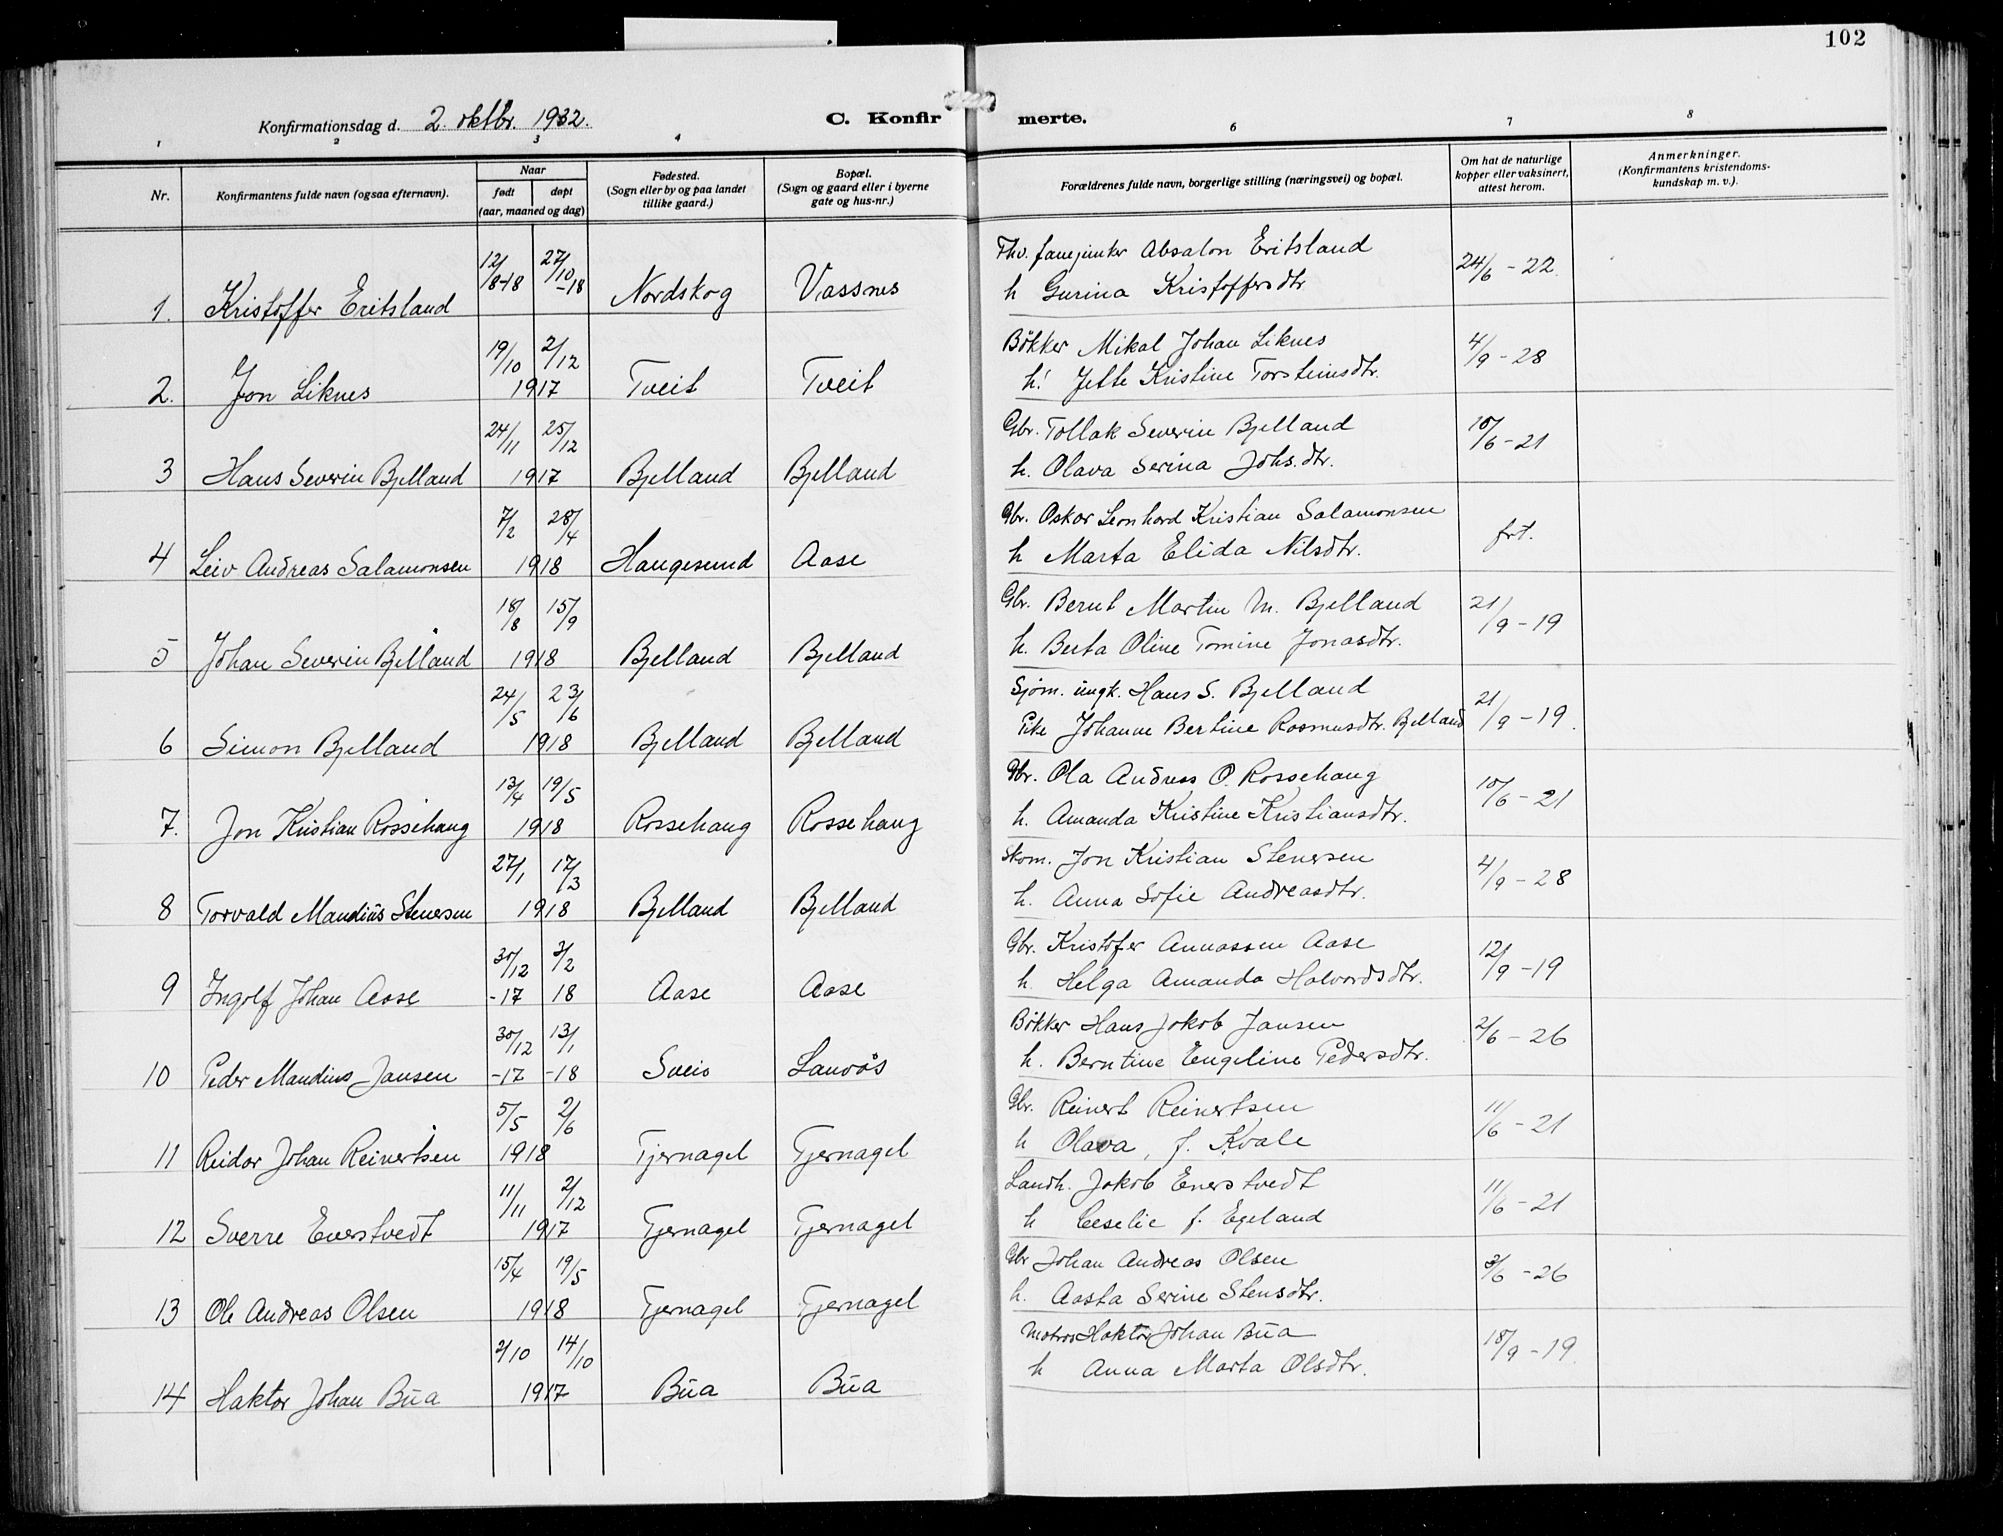 102
Konfirmationsdag d. 2. oktbr. 1932.
C. Konfirmerte.
1 2 3 4 6 7 8
Nr.
Konfirmantens fulde navn (ogsaa efternavn).
Naar
født døpt
(aar, maaned og dag)
Fødested.
(Sogn eller by og paa landet
tillike gaard.)
Bopæl.
(Sogn og gaard eller i byerne
gate og hus-nr.)
Forældrenes fulde navn, borgerlige stilling (næringsvei) og bopæl.
Om hat de naturlige
kopper eller vaksinert,
attest herom.
Anmerkninger.
(Konfirmantens kristendoms-
kundskap m. v.).
12/8-18 27/10-18 Fhv. fanejunker Absalon Eritsland
1. Kristoffer Eritsland Nordskog Vassnes h Gurina Kristoffersdtr 24/6-22.
19/10 2/12 Bökker Mikal Johan Liknes 4/9-28
2. Jon Liknes 1917 Tveit Tveit h! Jette Kristine Torsteinsdtr.
24/11 25/12 Gbr. Tollak Severin Bjelland 10/6-21
3 Hans Severin Bjelland 1917 Bjelland Bjelland h. Olava Serina Johs.dtr.
7/2 28/4 Gbr. Oskar Leonhard Kristian Salamonsen frt.
4 Leiv Andreas Salamonsen 1918 Haugesund Aase h Marta Elida Nilsdtr.
18/8 15/9 Gbr. Bernt Martin M. Bjelland 21/9-19
5 Johan Severin Bjelland 1918 Bjelland Bjelland h. Berta Oline Tomine Jonasdtr.
24/5 23/6 Sjöm. ungk. Hans S. Bjelland 21/9-19.
6 Simon Bjelland 1918 Bjelland Bjelland Pike Johanne Bertine Rasmusdtr. Bjelland
13/4 19/5 Gbr. Ola Andreas O. Rossehaug 10/6-21
7. Jon Kristian Rossehaug 1918 Rossehaug Rossehaug h. Amanda Kristine Kristiansdtr.
27/1 17/3 Skom. Jon Kristian Stenersen 4/9-28
8 Torvald Mandius Stenersen 1918 Bjelland Bjelland h. Anna Sofie Andreasdtr.
30/12 3/2 Gbr. Kristofer Annassen Aase 12/9-19
9 Ingolf Johan Aase -17 18 Aase Aase h. Helga Amanda Halvordsdtr.
30/12 13/1 Bökker Hans Jakob Jansen 2/6-26
10 Peder Mandius Jansen -17 -18 Sveio Lauvås h. Berntine Engeline Pedersdtr.
5/5 2/6 Gbr. Reinert Reinertsen 11/6-21
11 Reidar Johan Reinertsen 1918 Tjernagel Tjernagel h Olava, f. Kvale
11/11 2/12 Landh. Jakob Enerstvedt 11/6-21
12 Sverre Enerstvedt 1917 Tjernagel Tjernagel h Ceselie f. Egeland
15/4 19/5 Gbr Johan Andreas Olsen 3/6-26
13 Ole Andreas Olsen 1918 Tjernagel Tjernagel h. Aasta Serine Stensdtr.
2/10 14/10 Matros Haktor Johan Bua 18/9-19.
14 Haktor Johan Bua 1917 Bua Bua h Anna Marta Olsdtr.